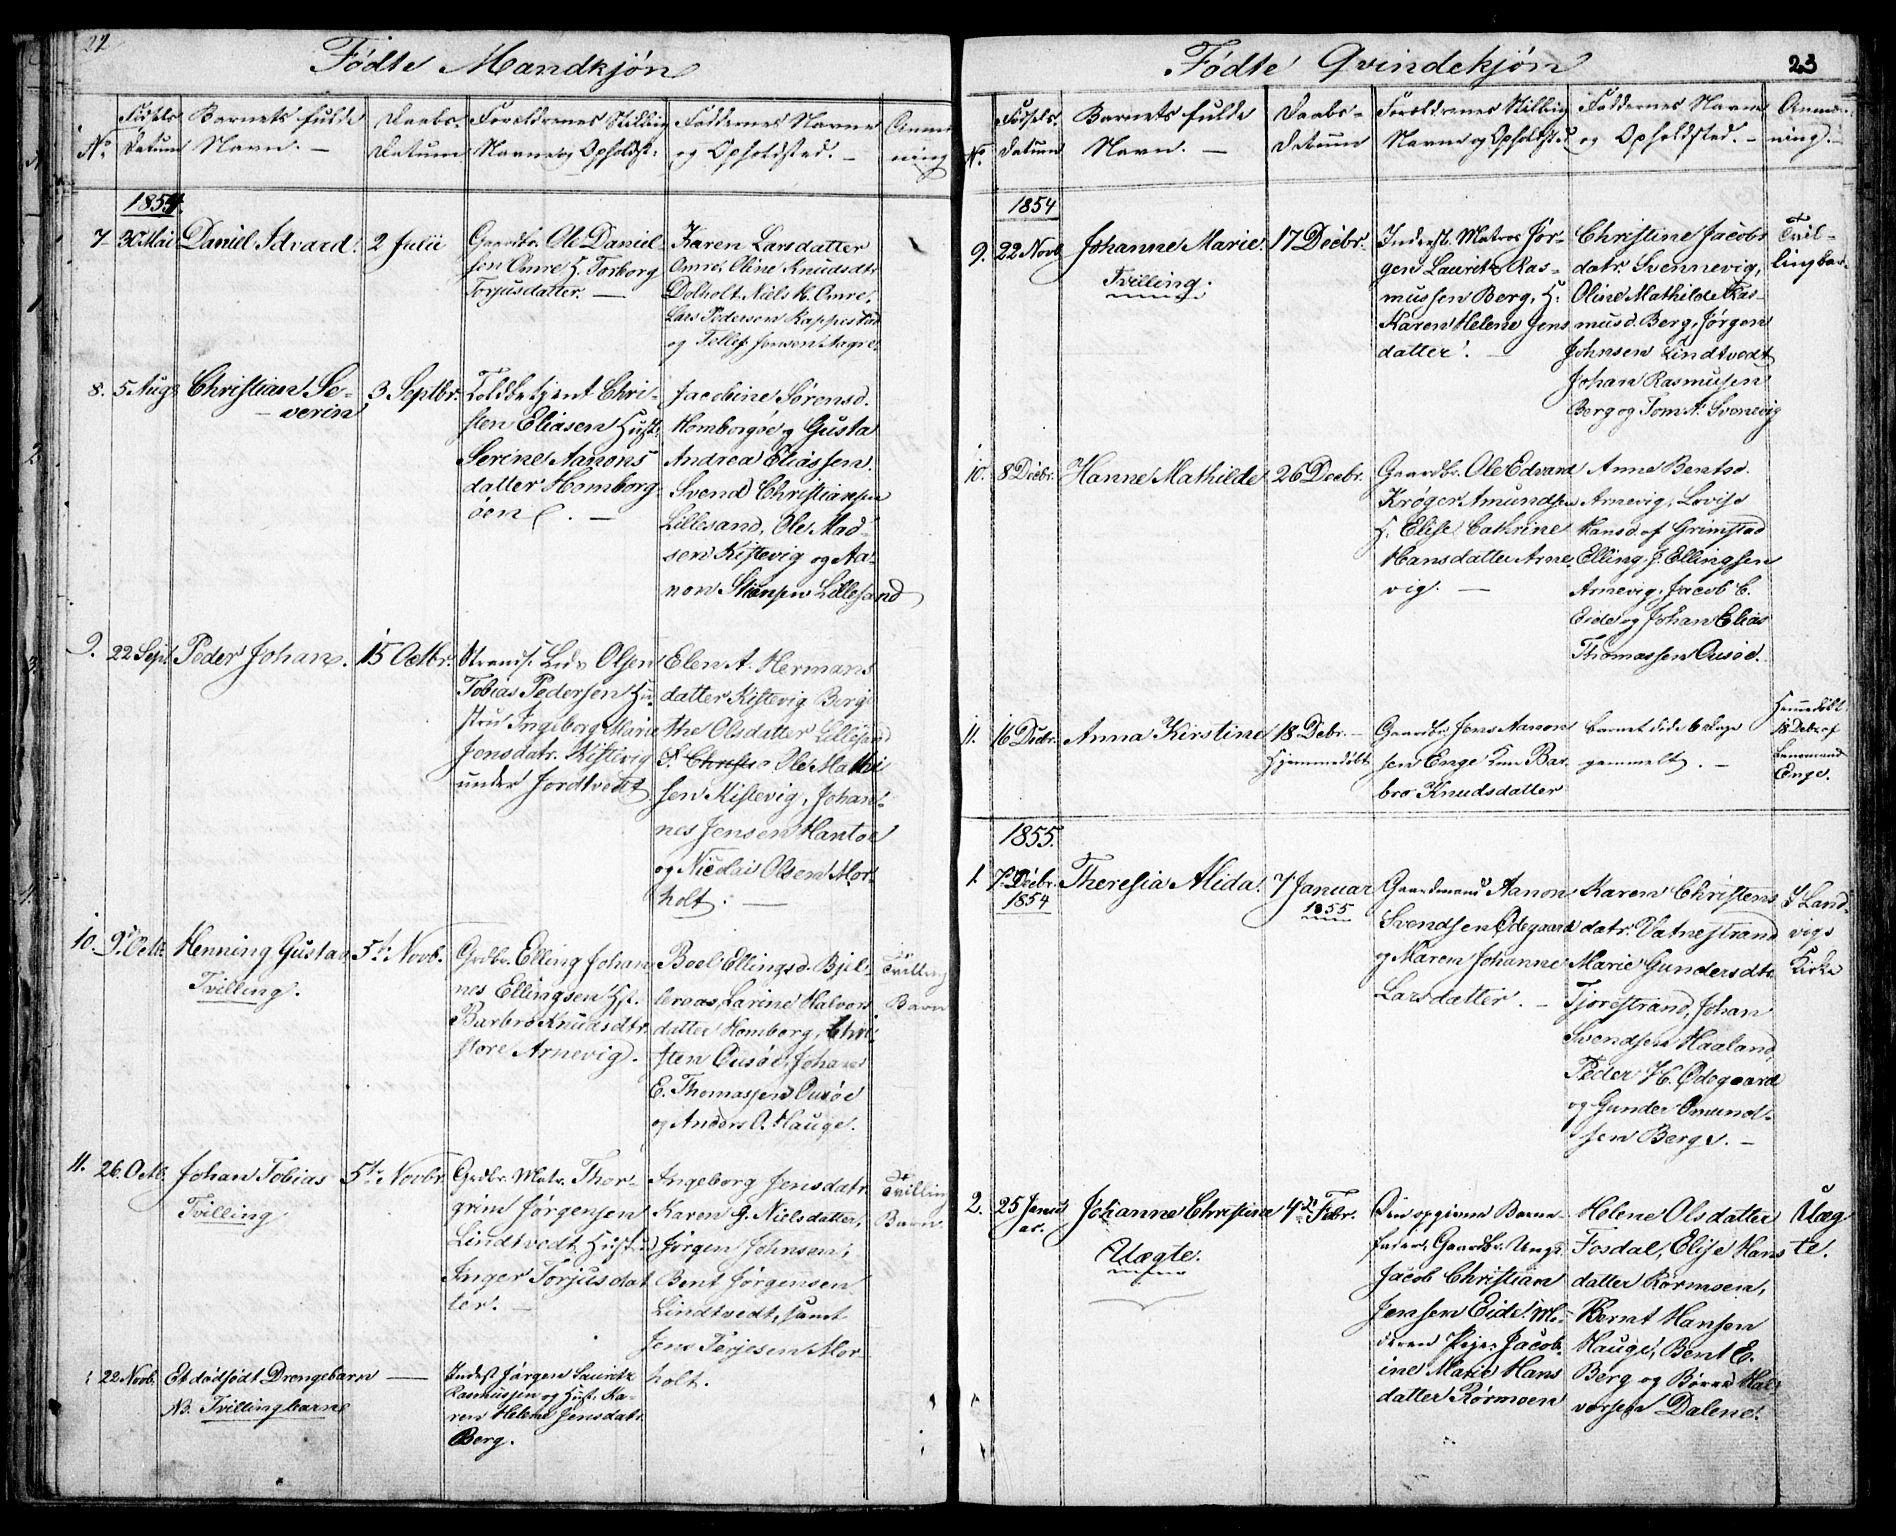 22
Fødte Mandkjøn
No.
Fødsels
Datum
Barnets fulde
Navn. —
Daabs-
Datum
Forældrenes Stilling
Navn og Opholdst.
Faddernes Navne
og Opholdsted. —
Anmær
ning
1854.
7 30 Mai Daniel Edvard. 2 Julii
Gaardbr. Ole Daniel-
sen Omre H. Torborg
Torjusdatter. —
Karen Larsdatter
Omre, Oline Knudsdtr
Dolholt, Niels K. Omre,
Lars Pedersen Kappestad
og Tellef Jensen Aagre.
8. 5 Aug Christian Se-
verin
3 Septbr.
Toldbetjent Chri-
sten Eliasen Hust.
Serine Aanons
datter Homborg-
öen. —
Jacobine Sørensd.
Homborgöe og Gusta
Andrea Eliassen.
Svend Christiansen
Lillesand, Ole Mad-
sen Kistevig og Aa-
non Lillesand
9. 22 Sept. Peder Johan. 15 Octbr.
Strands. Olsen
Tobias Pedersen Hu-
stru Ingeborg Marie
Jensdatr. Kistevig
under Jordtvedt
Elen A. Hermans
datter Kistevig Berg
the Olsdatter Lillesand
Ole Mathi
sen Kistevig, Johan-
nes Jensen Hantoe
og Nicolai Olsen Mor-
holt. —
10. 9 Octb. Henning Gustav 5te Novb.
Tvilling.
Grdbr. Elling Johan
nes Ellingsen Hst.
Barbro Knudsdtr.
store Arnevig.
Boel Ellingsd. Bjel-
leraas, Larine Halvors
datter Homborg, Chri-
sten Ousöe, Johan
E. Thomassen Ousöe
og Anders O. Hauge.
Tvilling
Barn
11. 26. Octb. Johan Tobias 5te Novbr.
Tvilling
Grdbr. Matr. Thor-
grim Jørgensen
Lindtvedt, Hustru
Inger Torjusdat
ter. —
Ingeborg Jensdatr.
Karen G. Nielsdatter,
Jørgen Johnsen,
Bent Jørgensen
Lindtvedt, samt
Jens Terjesen Mor-
holt.
Tvilling
Barn.
22 Novb. Et dødfødt Drengebarn —
NB. Tvillingbarn
Inderst Jørgen Lauritz
Rasmussen og Hust. Ka-
ren Helene Jensdatr.
Berg.
Fødte Qvindekjøn
23
No.
Fødsels-
Datum
Barnets fulde
Navn. —
Daabs-
Datum
Forældrenes Stilling
Navn og Opholdsted
Faddernes Navne
og Opholdsted. —
Anmær-
ning. —
1854
9. 22 Novb Johanne Marie. 17 Decbr.
Tvilling.
Inderst. Matros Jør-
gen Lauritz Ras-
mussen Berg, H.
Karen Helene Jens
datter. —
Christine Jacobs
datr. Svennevig,
Oline Mathilde Ras-
musd. Berg, Jørgen
Johnsen Lindtvedt
Johan Rasmusen
Berg og Tom N. Svenevig
Tvil-
lingbar-
10. 8 Decbr. Hanne Mathilde 26 Decbr.
Gaardbr. Ole Edvard
Krøger Amundsen
H. Elise Cathrine
Hansdatter Arne
vig. —
Anne Bentsd.
Arnevig, Lovise
Hansd. af Grimstad
Elling J. Ellingsen
Arnevig, Jacob C.
Eide og Johan Elias
Thomassen Ousöe.
11. 16 Decbr. Anna Kirstine 18 Debr. —
Hjemmedöbt
Gaardbr. Jens Aanon
sen Enge Kone Bar-
bro Knudsdatter
barnet døde 6 Dage
gammelt. —
Hjemmedöbt
18 Debr af
Lensmand
Enge.
1855.
1. 7 Decbr.
1854
Theresia Alida. 7 Januar
1855
Gaardmand Aanon
Svendsen Ødegaard
og Maren Johanne
Larsdatter. —
Karen Christens
datr. Vatnestrand
Marie Gundersdtr.
Tjorestrand, Johan
Svendsen Haaland,
Peder H. Ødegaard
og Gunder Omund-
sen Berge. —
I Land-
vigs
Kirke
2. 25 Janu
ar.
Johanne Christine 4de Febr.
Uægte.
Den opgivne Barne-
fader, Gaardbr. Ungk.
Jacob Christian
Jensen Eide. Mo-
deren Pige Jacob
ine Marie Hans
datter Rørmoen
Helene Olsdatter
Fosdal, Elise Hans
datter Rørmoen,
Bernt Hansen
Hauge, Bent E.
Berg og Børre Hal-
vorsen Dalene.
Uæg
te.